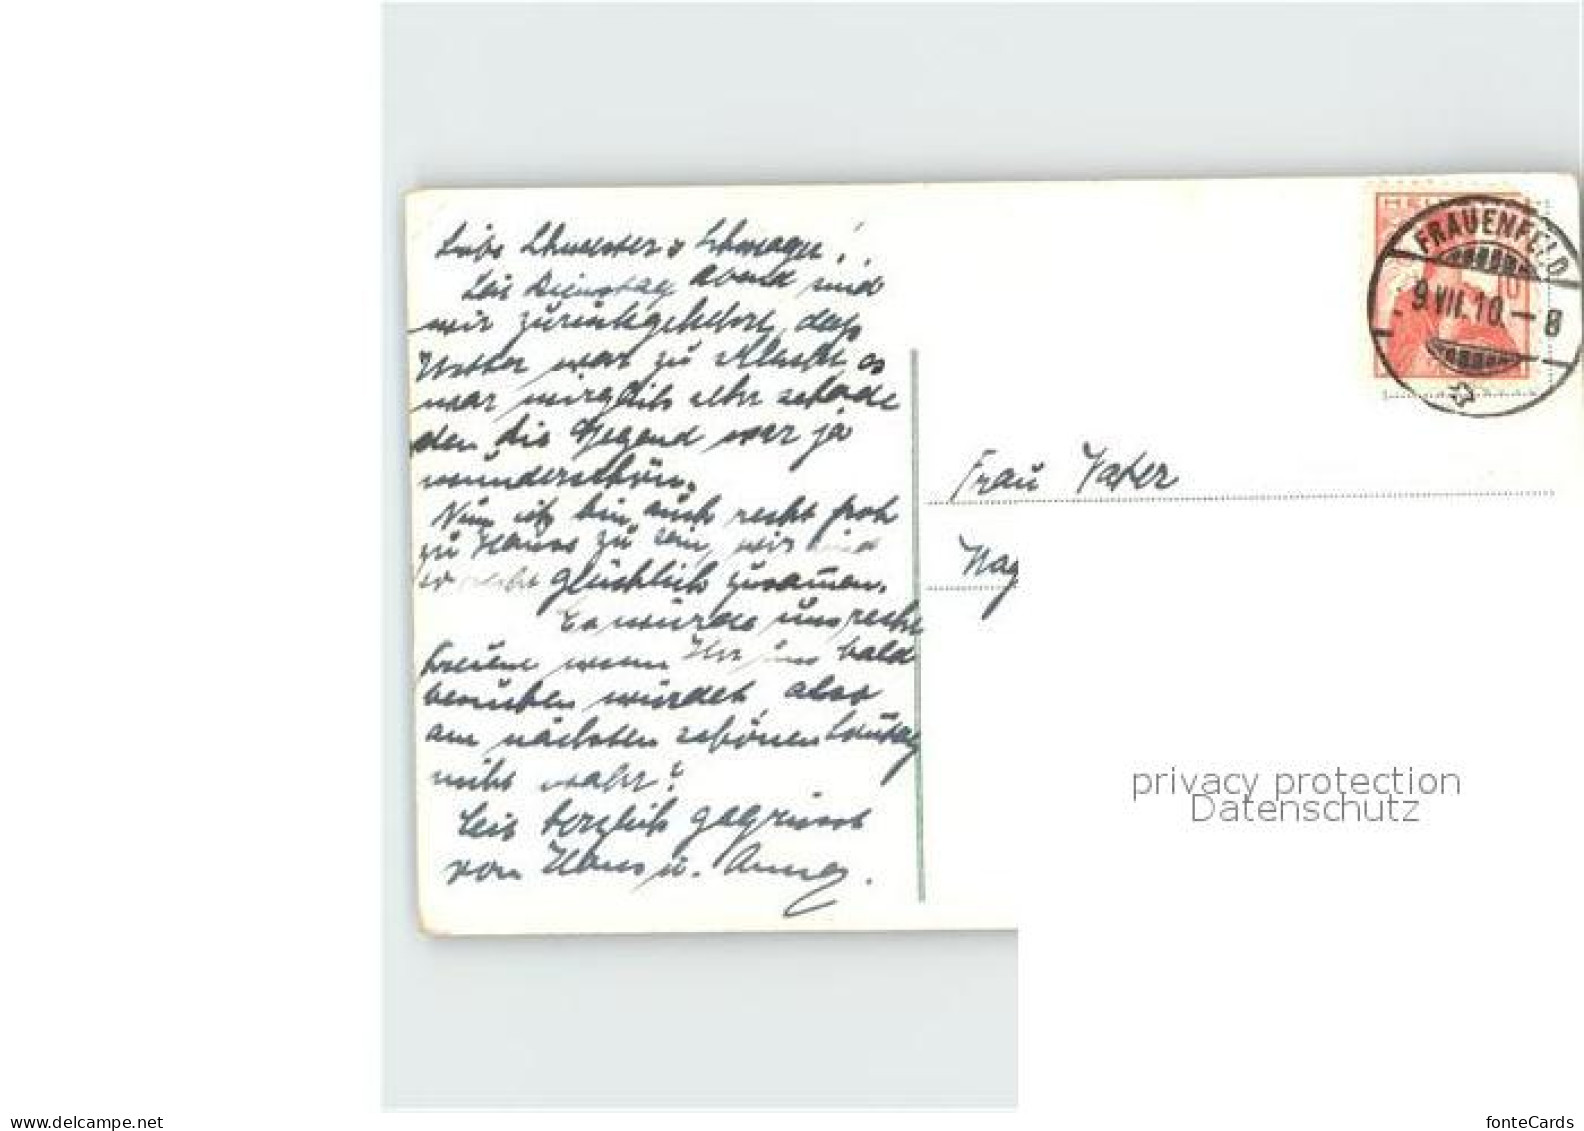 Liebe Schwester u Schwager!
Seit Dienstag Abend sind
wir zurückgekehrt, das
Wetter war zu schlecht, es
war wirglich sehr schade
den die Gegend war ja
wunderschön.
Nun ich bin auch recht froh
zu Hause zu sein, wir sind
so recht glücklich zusamen.
Es würde uns recht
freuen wenn Ihr uns bald
besuchen würdet, also
am nächsten schönen Sontag
nicht wahr?
Seit herzlich gegrüsst
von Hans u. Anna.
HEL
FRAUENFELD
9 VII.10.-8
10
Frau Vater
Wag
privacy protection
Datenschutz
www.delcampe.net
fonteCards